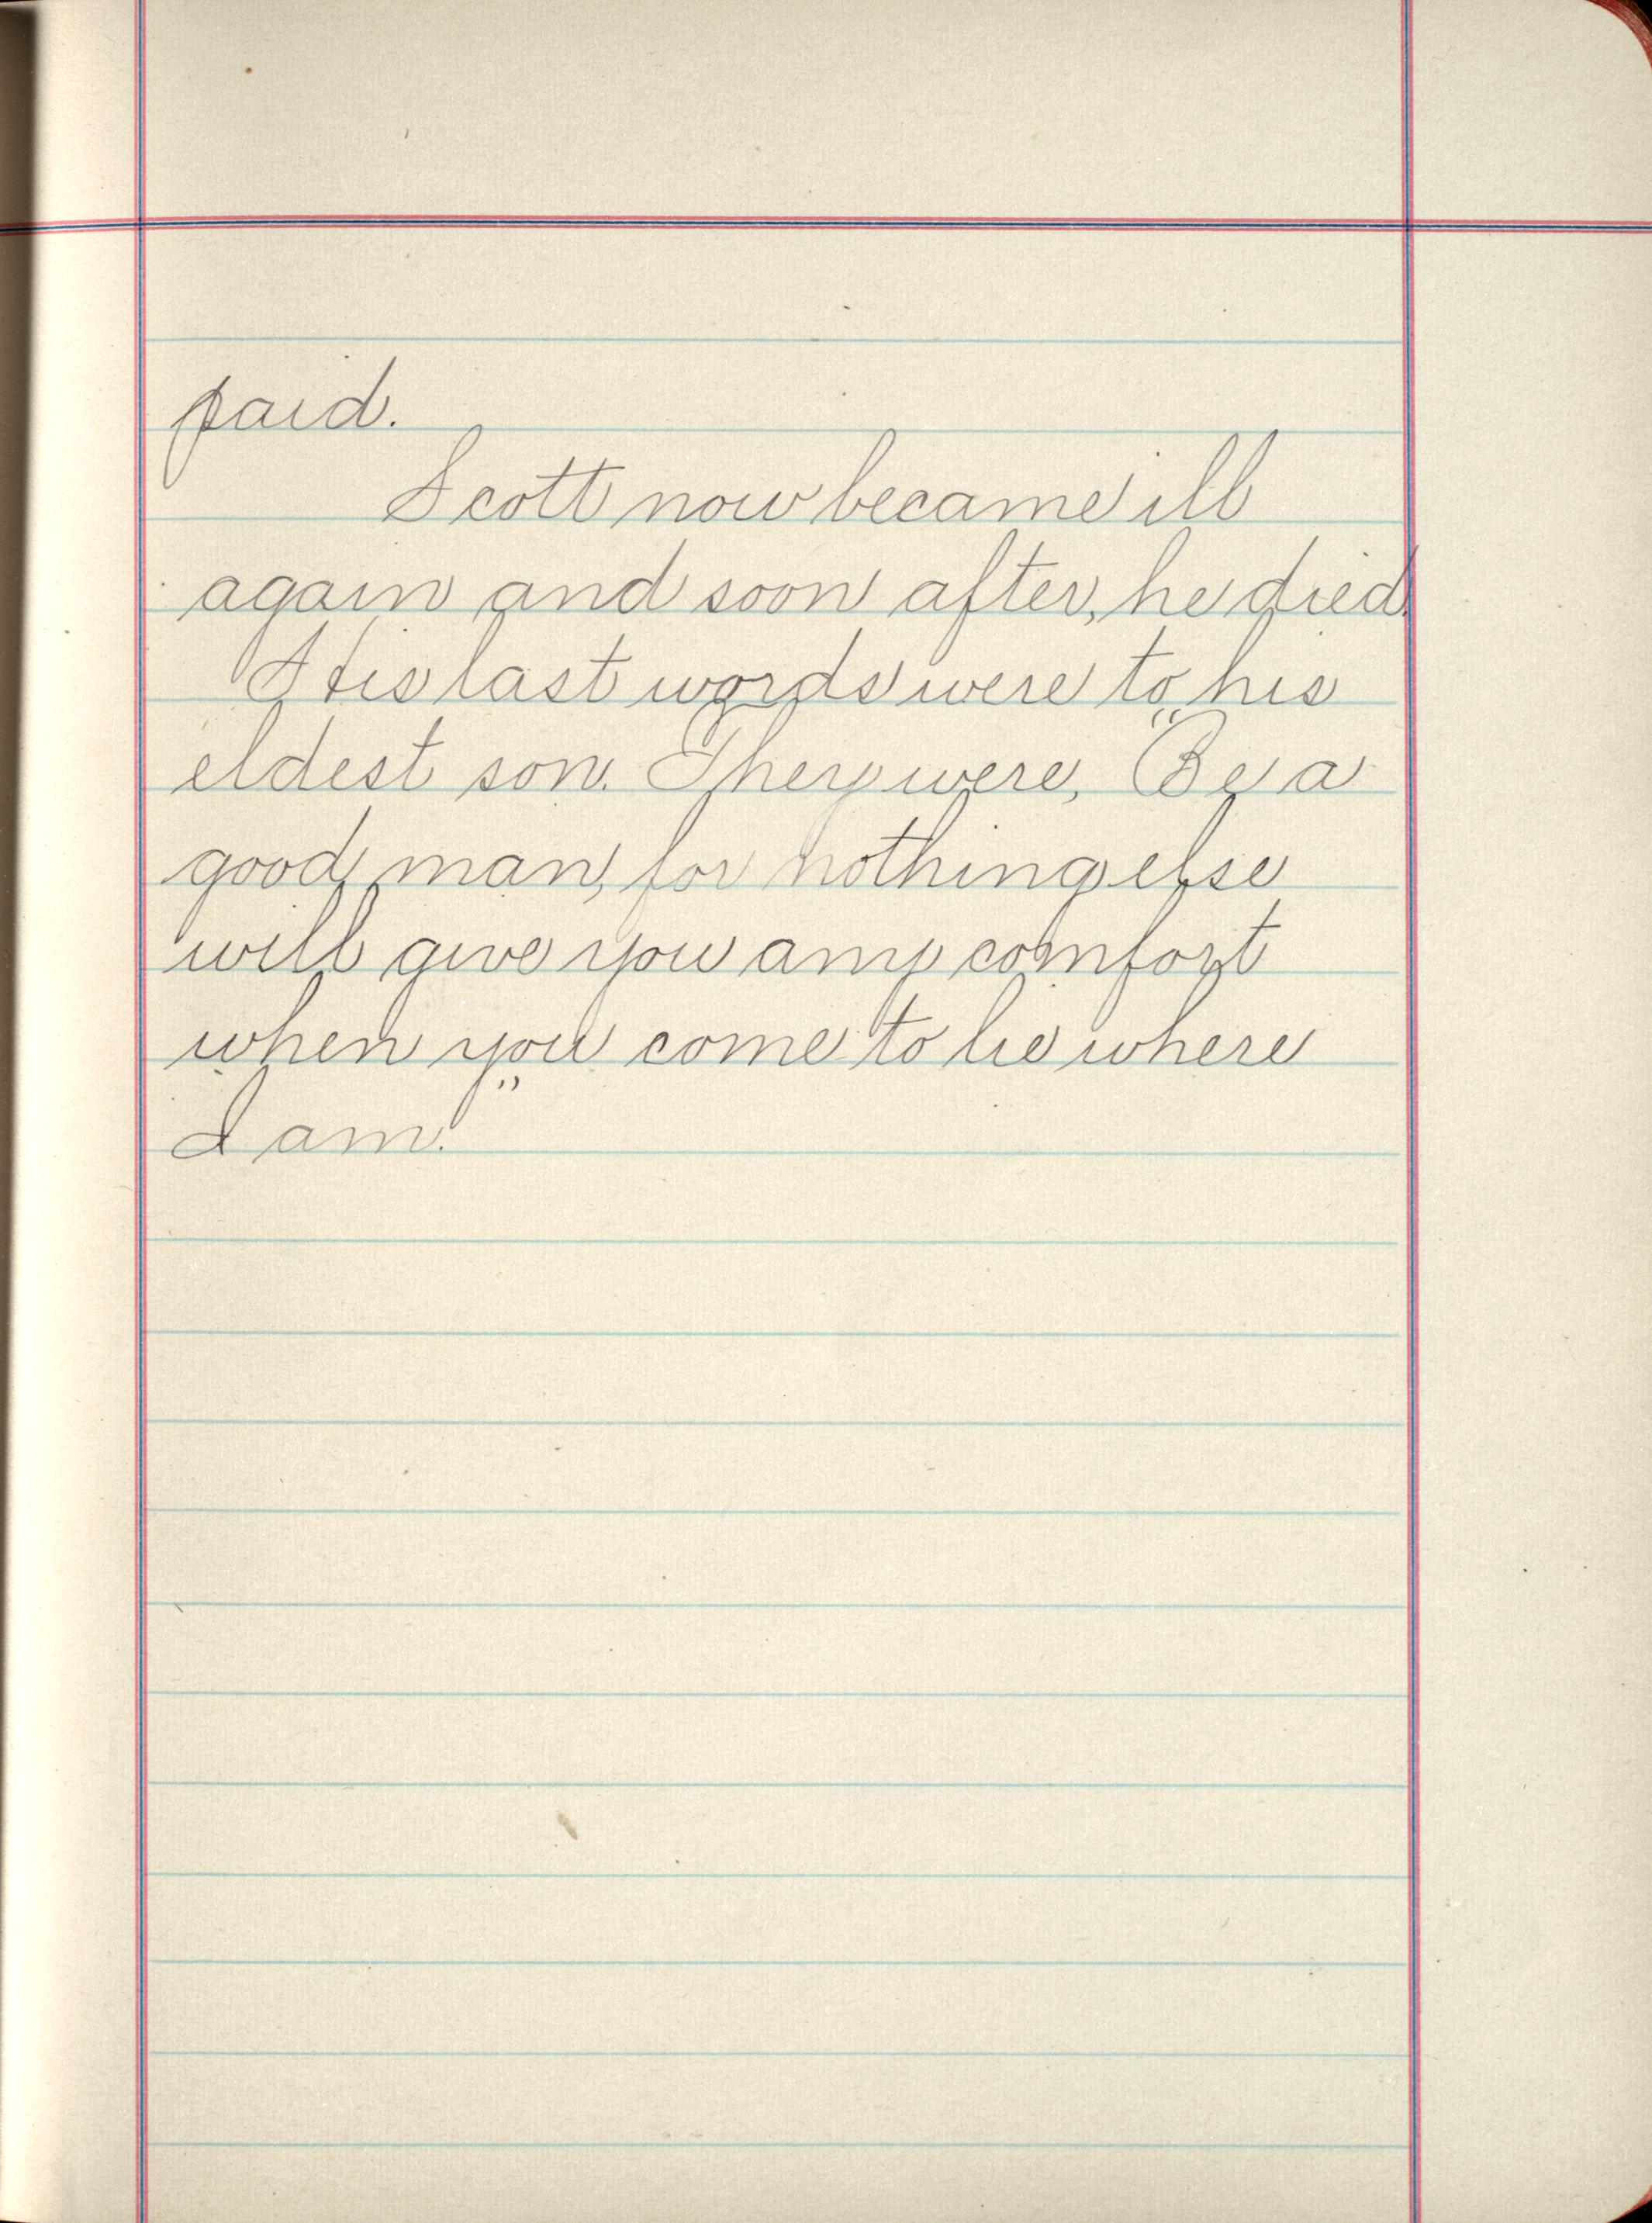 paid.
Scott now became ill
again and soon after, he died.
His last words were to his
eldest son. They were, "Be a
good man, for nothing else
will give you any comfort
when you come to lie where
I am."